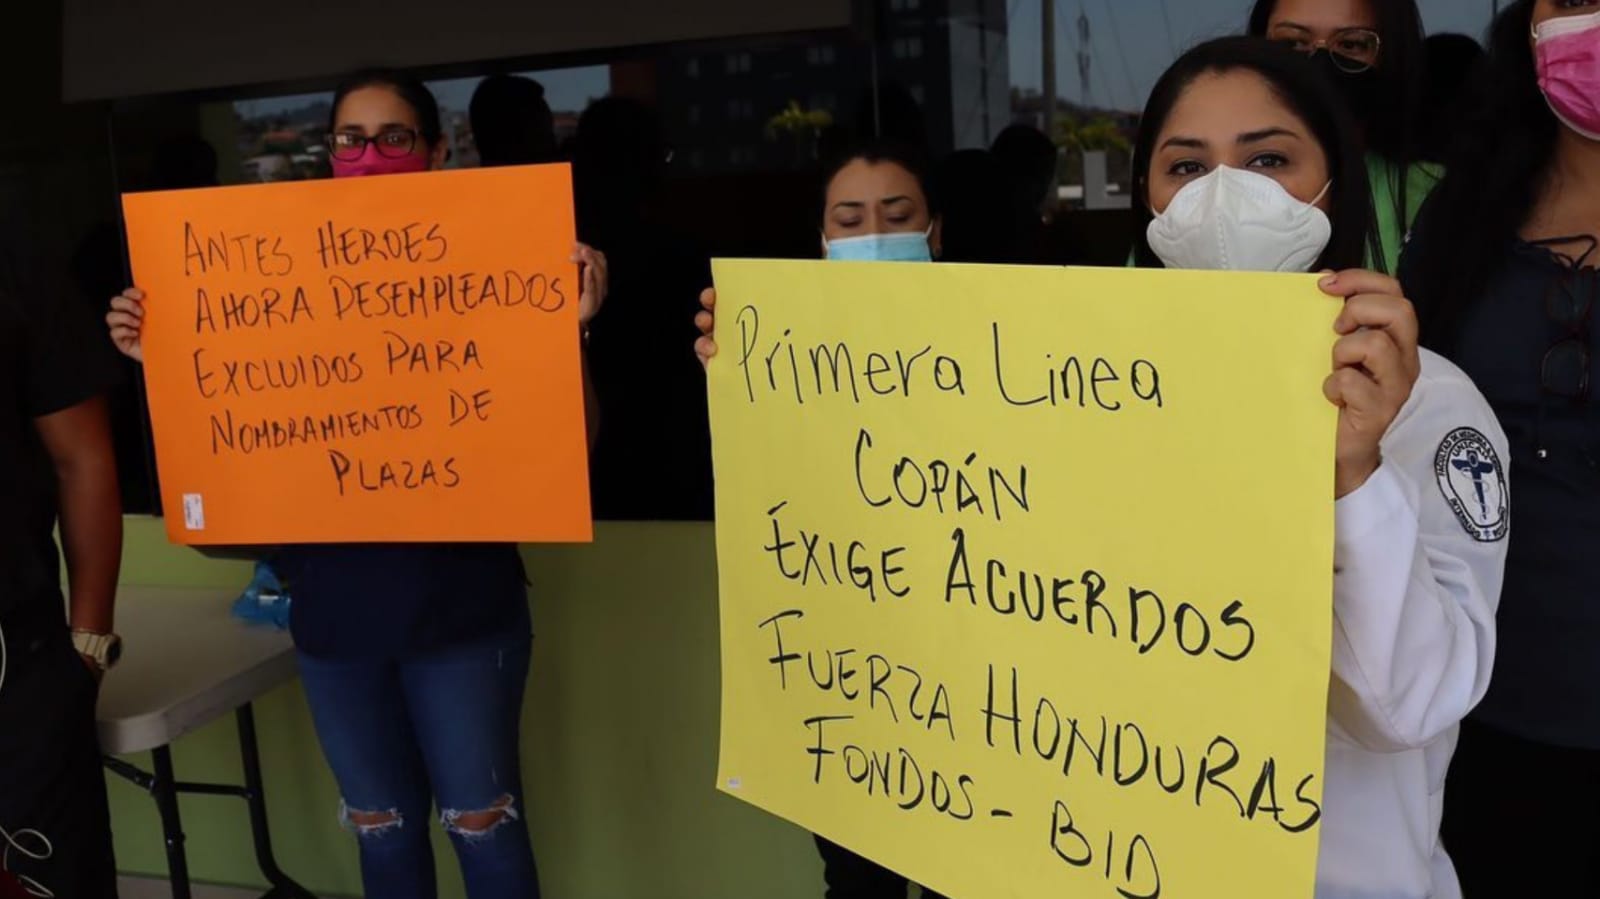 ANTES HEROES
AHORA DESEMPLEADOS
EXCLUIDOS PARA
NOMBRAMIENTOS DE
PLAZAS
Primera Linea
COPÁN
EXIGE ACUERDOS
FUERZA HONDURAS
FONDOS - BID